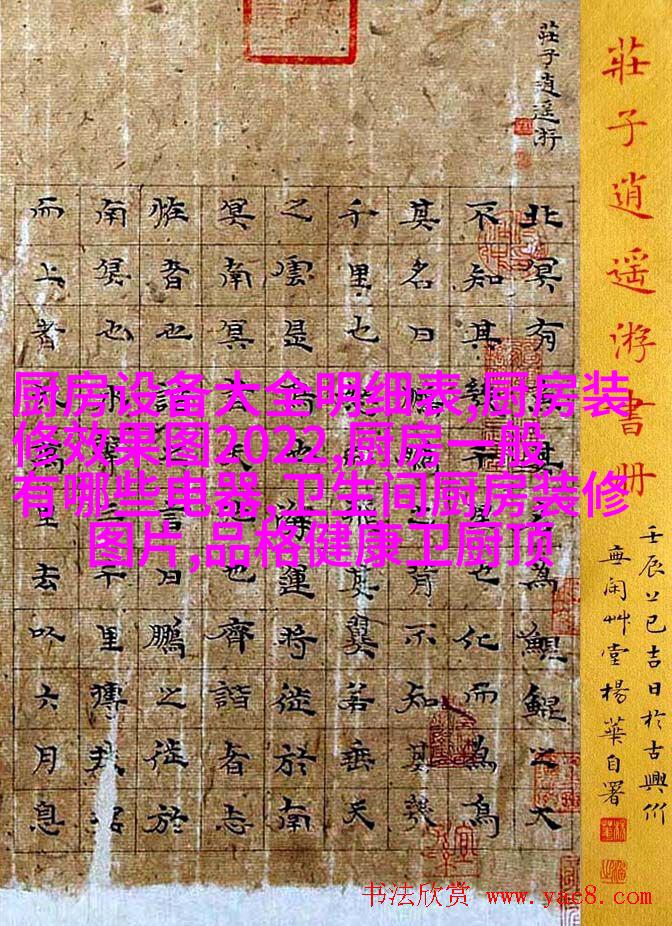 莊子逍遙游書册
壬辰上巳吉日於古興竹
無闲艸堂楊華自署
莊子逍遙游
北冥有其為鯤鯤之大
不知其幾也化而為鳥
其名曰鵬鵬之背不知其幾
千里也飛其翼若垂天
之雲是鳥也海運將徙於南
冥南冥天也齊諧者志
怪者也諧言曰鵬之徙於
南冥也三千里摶
而上者九萬里去以六月息
厨房设备大全明细表,厨房装
修效果图2022,厨房一般
有哪些电器,卫生间厨房装修
图片,品格健康卫厨顶
书法欣赏 www.yac8.com